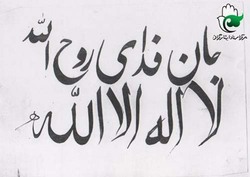 جان فدای روح الله
لا اله الا الله